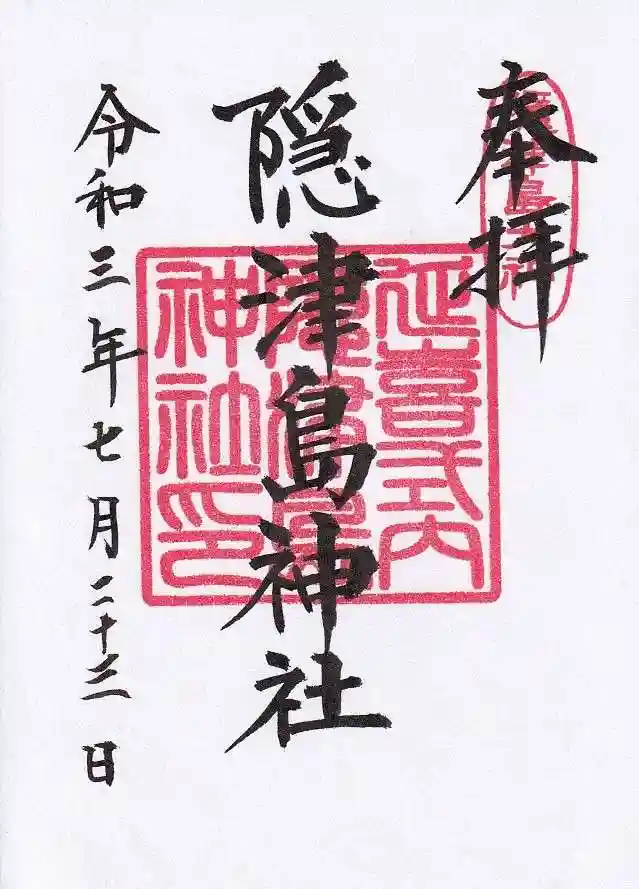 奉拝
隠津島神社
令和三年七月二十三日
延喜式内
隠津島
神社印